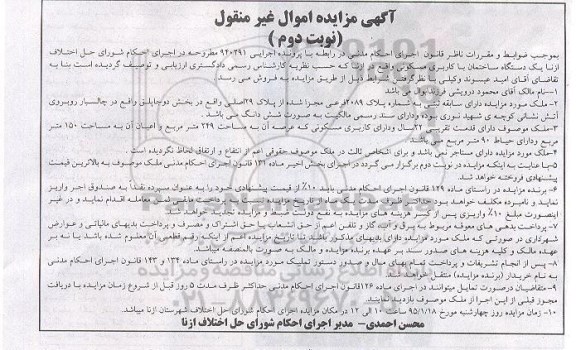 آگهی مزایده اموال غیر منقول
(نوبت دوم)
بموجب ضوابط و مقررات ناظر قانون اجرای احکام مدنی در رابطه با پرونده اجرایی ۹۴۰۳۹۱ مطروحه در اجرای احکام شورای حل اختلاف
ازنا یک دستگاه ساختمان با کاربری مسکونی واقع در ازنا که حسب نظریه کارشناس رسمی دادگستری ارزیابی و توصیف گردیده است بنا به
تقاضای آقای امید عبدوند وکیلی با در نظر گرفتن ضوابط ذیل از طریق مزایده به فروش می رسد.
۱-نام مالک آقای محمود درویشی فرزند والی می باشد
۲-ملک مورد مزایده دارای سابقه ثبتی به شماره پلاک ۳۰۸۹فرعی مجزا شده از پلاک ۳۹اصلی واقع در بخش دوجاپلق واقع در چالسپار روبروی
آتش نشانی کوچه ی شهید نوری بوده ودارای سند رسمی مالکیت به صورت شش دانگ می باشد.
۳-ملک موصوف دارای قدمت تقریبی ۲۲سال ودارای کاربری مسکونی که عرصه آن به مساحت ۲۴۹ متر مربع و اعیان آن به مساحت ۱۵۰ متر
مربع ودارای حیاط ۹۰ متر مربع می باشد.
۴-ملک مورد مزایده دارای مستاجر نمی باشد و برای اشخاص ثالث در ملک موصوف حقوقی اعم از انتفاع و ارتفاق لحاظ نگردیده است.
۵-با عنایت به اینکه مزایده در نوبت دوم برگزار می گردد در اجرای بخش اخیر ماده ۱۳۱ قانون اجرای احکام مدنی ملک موصوف به بالاترین قیمت
پیشنهادی فروخته خواهد شد.
۶- برنده مزایده در راستای ماده ۱۲۹ قانون اجرای احکام مدنی باید ۱۰٪ از قیمت پیشنهادی خود را به عنوان سپرده نقدا به صندوق اجر واریز
نماید و نامبرده مکلف خواهد بود حداکثر ظرف مدت یک ماه از تاریخ مزایده نسبت به پرداخت مابقی ثمن معامله اقدام نماید و در غیر
اینصورت مبلغ ۱۰٪ واریزی پس از کسر هزینه های مزایده به نفع دولت ضبط و مزایده تجدید خواهد شد.
۷- پرداخت بدهی های معوقه مربوط به برق و آب، گاز و تلفن اعم از حق انشعاب یا حق اشتراک و مصرف و پرداخت بدیهای مالیاتی و عوارض
شهرداری در صورتی که ملک مورد مزایده دارای بدیهای مذکور باشد تا تاریخ مزایده اعم از اینکه رقم قطعی آن معلوم شده باشد یا نه بر
عهده مالک و کلیه هزینه های صدور سند بر عهده برنده مزایده و مالک به صورت بالمنصفه میباشد.
۸- پس از انجام تشریفات و پرداخت تمام بهای مبال و صدور دستور تملیک مورد مزایده در راستای ماده ۱۳۴ و ۱۴۳ قانون اجرای احکام مدنی
به نام خریدار (برنده مزایده) منتقل خواهد شد.
۹-متقاضیان درصورت تمایل میتوانند در اجرای ماده ۱۲۶قانون اجرای احکام مدنی حداکثر ظرف مدت ۵ روز قبل از شروع زمان مزایده با دریافت
مجوز قبلی از این اجرا از ملک موصوف بازدید نمایند.
۱۰- زمان مزایده روز چهارشنبه مورخ ۹۵/۱/۱۸ ساعت ۱۰ الی ۱۲ در مکان مزایده اجرای احکام شورای حل اختلاف شهرستان ازنا میباشد.
محسن احمدی- مدیر اجرای احکام شورای حل اختلاف ازنا